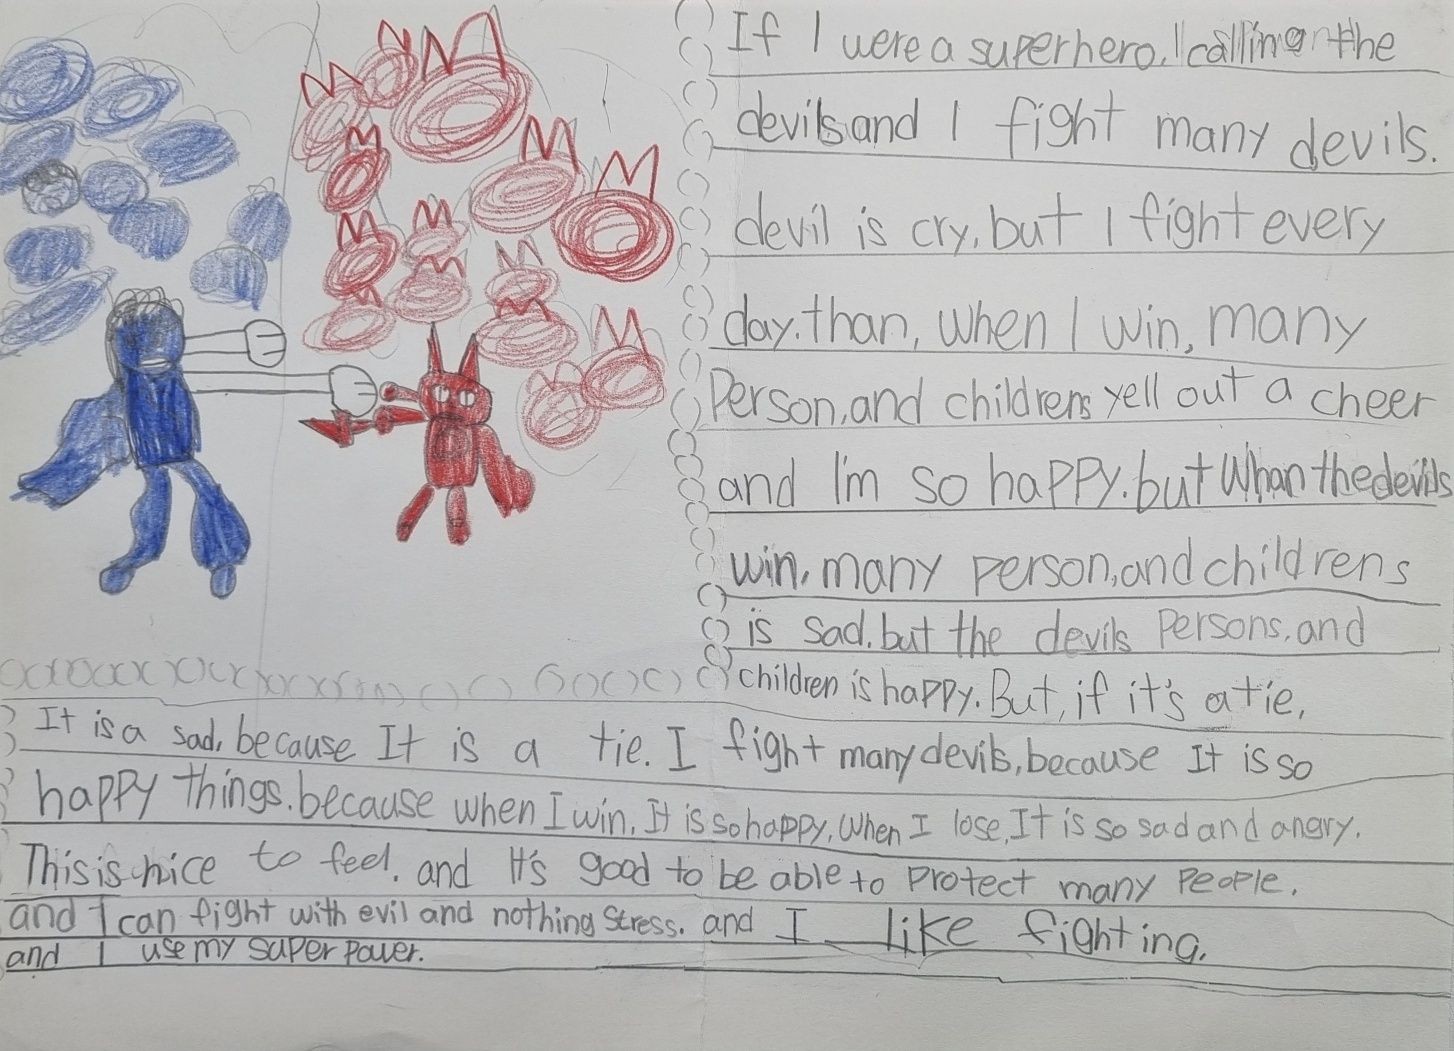 If I were a superhero, I calling the
devils and I fight many devils.
devil is cry, but I fight every
day. than, when I win, many
Person, and childrens yell out a cheer
and I'm so happy. but Whan the devils
win, many person, and childrens
is sad. but the devils Persons, and
children is happy. But, if it's a tie,
It is a sad, because It is a tie. I fight many devils, because It is so
happy things. because when I win, It is so happy, When I lose, It is so sad and angry.
This is nice to feel. and It's good to be able to Protect many People.
and I can fight with evil and nothing stress. and I like fighting.
and I use my super power.